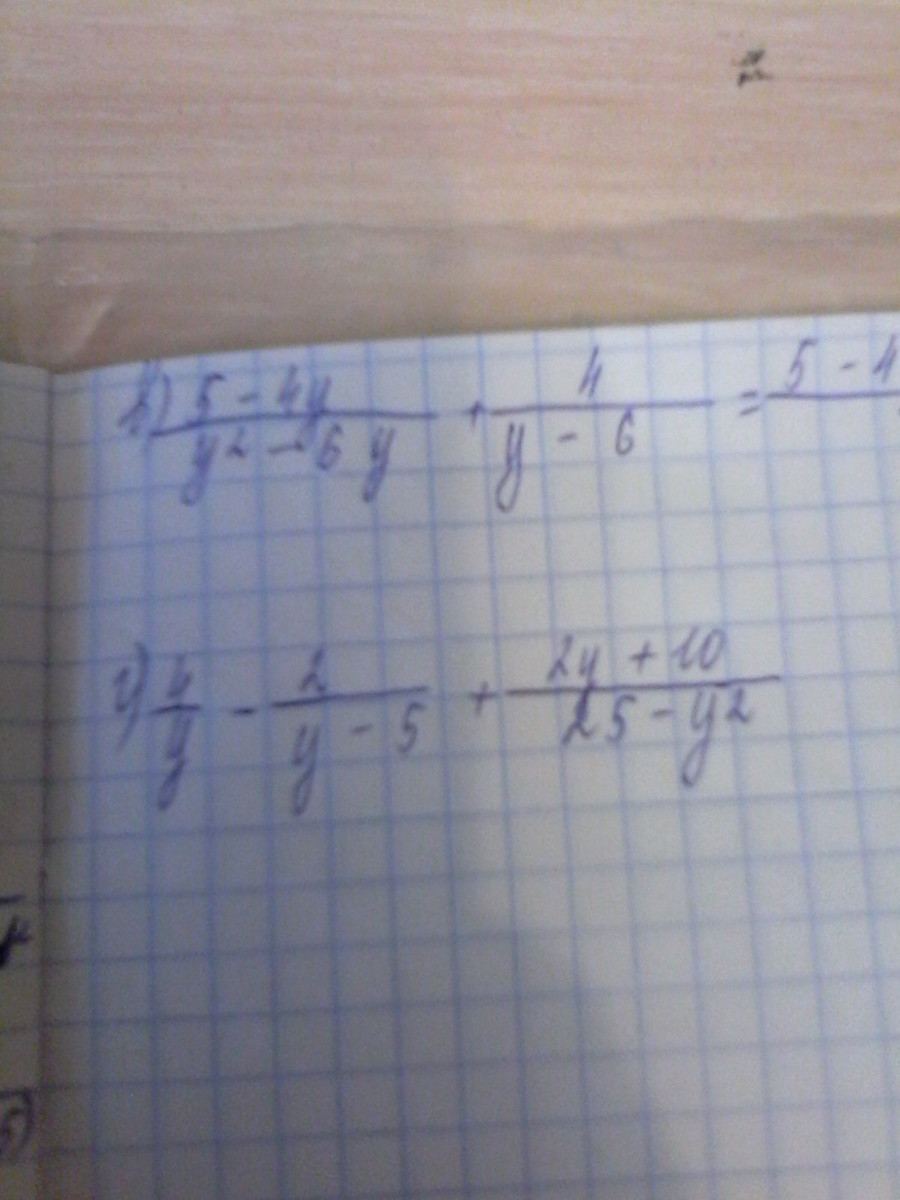 в) (5 - 4y)/(y² - 6y) + 4/(y - 6) = 5 - 4
г) 4/y - 2/(y - 5) + (2y + 10)/(25 - y²)
5)